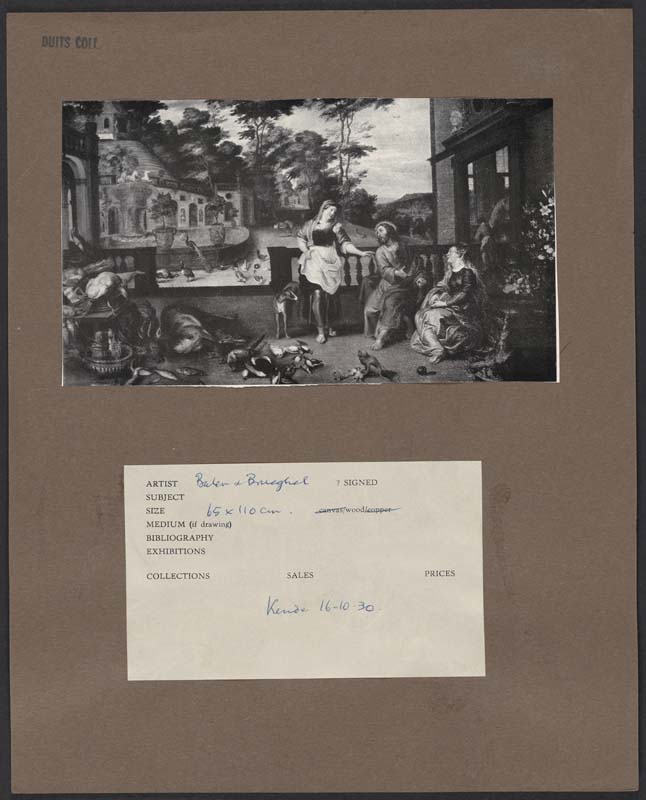 DUITS COLL.
ARTIST Balen & Brueghel ? SIGNED
SUBJECT
SIZE 65 x 110 cm. canvas/wood/copper
MEDIUM (if drawing)
BIBLIOGRAPHY
EXHIBITIONS
COLLECTIONS SALES PRICES
16-10-30.